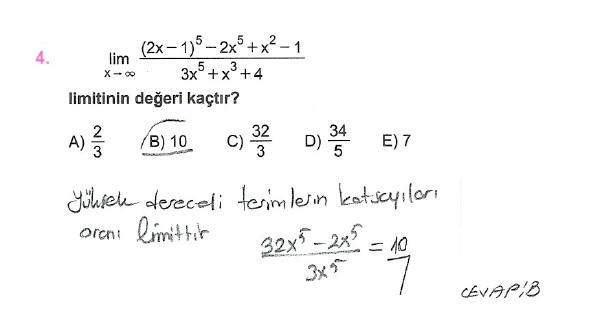 4. lim x→∞ ((2x−1)⁵−2x⁵+x²−1)/(3x⁵+x³+4)
limitinin değeri kaçtır?
A) 2/3 B) 10 C) 32/3 D) 34/5 E) 7
yüksek dereceli terimlerin katsayıları
oranı limittir
(32x⁵−2x⁵)/(3x⁵) = 10
CEVAP:B